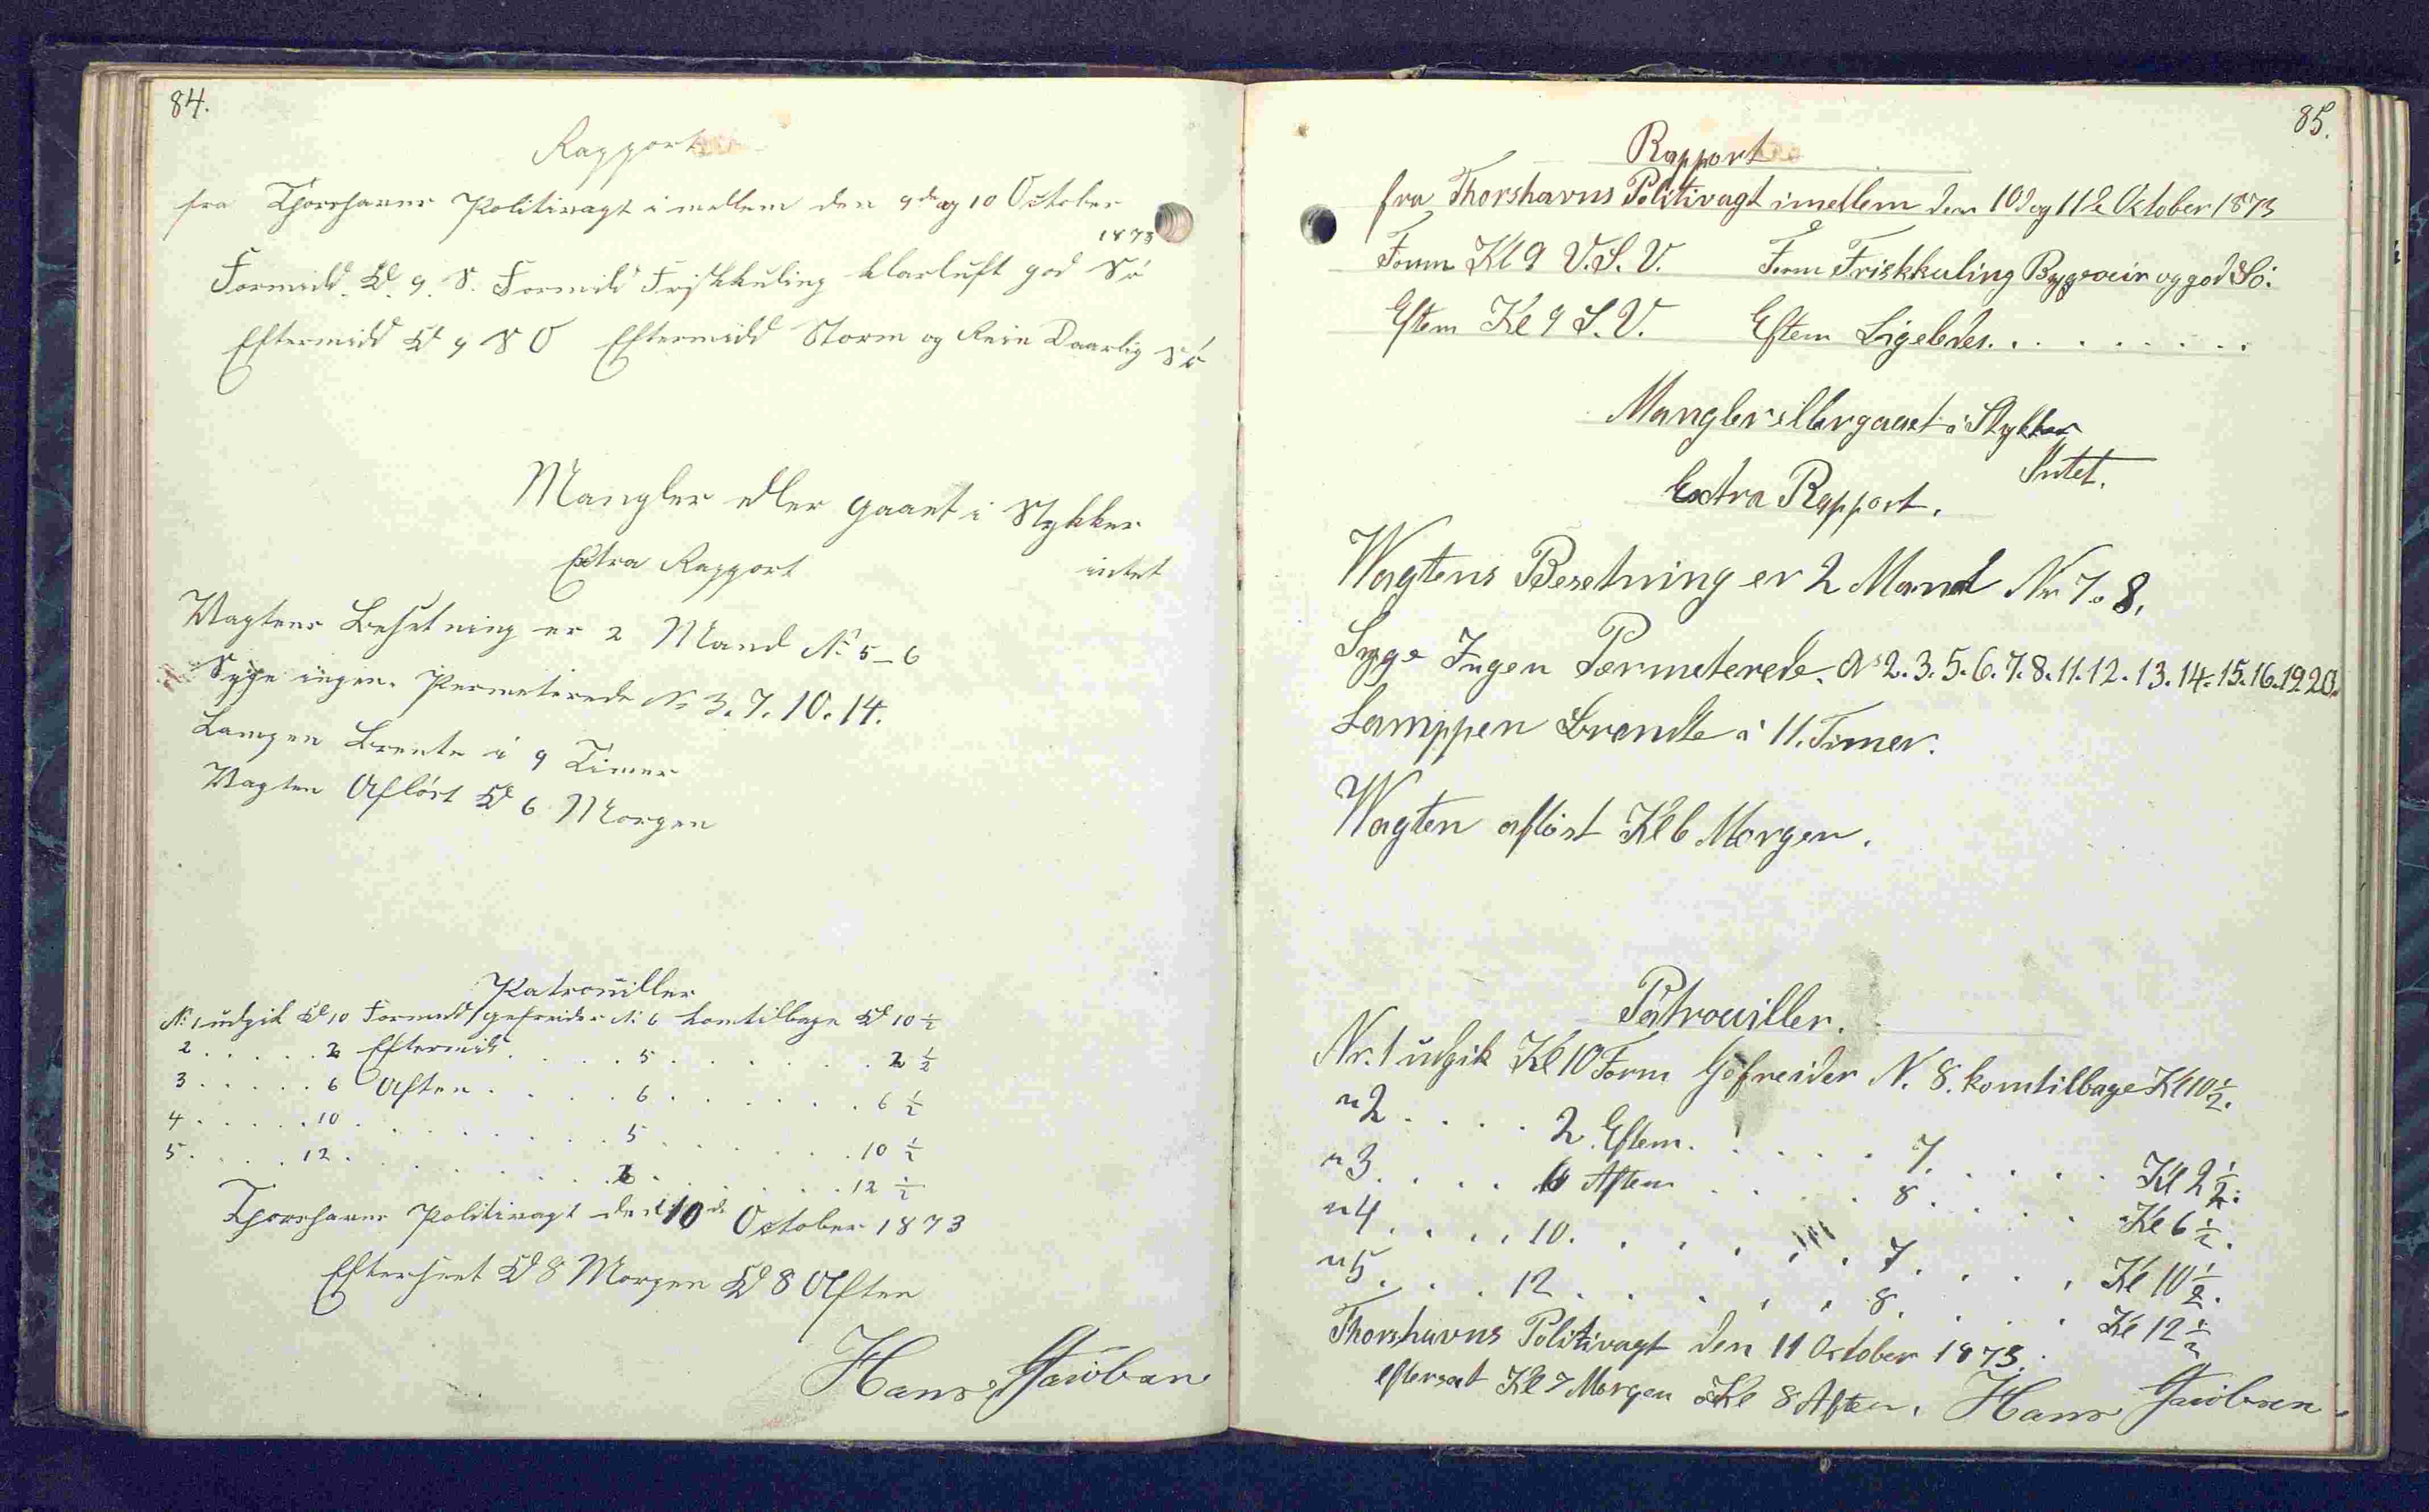 84.
Rapport
fra Thorshavns Politivagt i mellem den 9de og 10 October
1873
Formidd. Kl. 9. S. Formidd Friskkuling klarluft god Sö
Eftermidd Kl 9 S O Eftermidd Storm og Rein Daarlig Sö
Mangler eller gaaet i Stykker
Extra Rapport intet
Vagtens Besetning er 2 Mand No 5-6
Syge ingen. Permeterede No 3. 7. 10. 14.
Lampen Brente i 9 Timer
Vagten Aflöst Kl 6 Morgen
Patrouiller
No 1 udgik Kl 10 Formidd gefreider No 6 komtilbage Kl 10 1/2
2 . . . . . 2 Eftermid. . . . . 5 . . . . . . . 2 1/2
3 . . . . . 6 Aften . . . . . 6 . . . . . . . 6 1/2
4 . . . . . 10 . . . . . . . . 5 . . . . . . . 10 1/2
5 . . . . 12 . . . . . . . . 6 . . . . . . . 12 1/2
Thorshavns Politivagt den 10de October 1873
Efterseet Kl 8 Morgen Kl 8 Aften
Hans Jacobsen
85.
Rapport
fra Thorshavns Politivagt imellem den 10d og 11de October 1873
Form Kl 9 V.S.V. Form Friskkuling Bygevæir og god Sö.
Eftem Kl 9 S.V. Eftem Ligeledes. . . . . . . . .
Mangler ellergaaet i Stykker
Intet.
Extra Rapport.
Wagtens Besetning er 2 Mand Nr 7. 8.
Syge Ingen Permeterede. Ns 2. 3. 5. 6. 7. 8. 11. 12. 13. 14. 15. 16. 19. 20.
Lamppen Brendte i 11. Timer.
Wagten aflöst Kl 6 Morgen.
Patrouiller.
Nr. 1 udgik Kl 10 Form Göfreider N. 8. komtilbage Kl 10 1/2.
" 2 . . . . 2 Eftem. . . . . . 7. . . . . . Kl 2 1/2.
" 3. . . . . 6 Aften . . . . . 8. . . . . . Kl 6 1/2.
" 4. . . . . 10. . . . . . . . 7. . . . . . Kl 10 1/2.
" 5. . . . 12. . . . . . . 8. . . . . . Kl 12 1/2
Thorshavns Politivagt den 11 October 1873.
eftersat Kl 7 Morgen Kl 8 Aften. Hans Jacobsen.